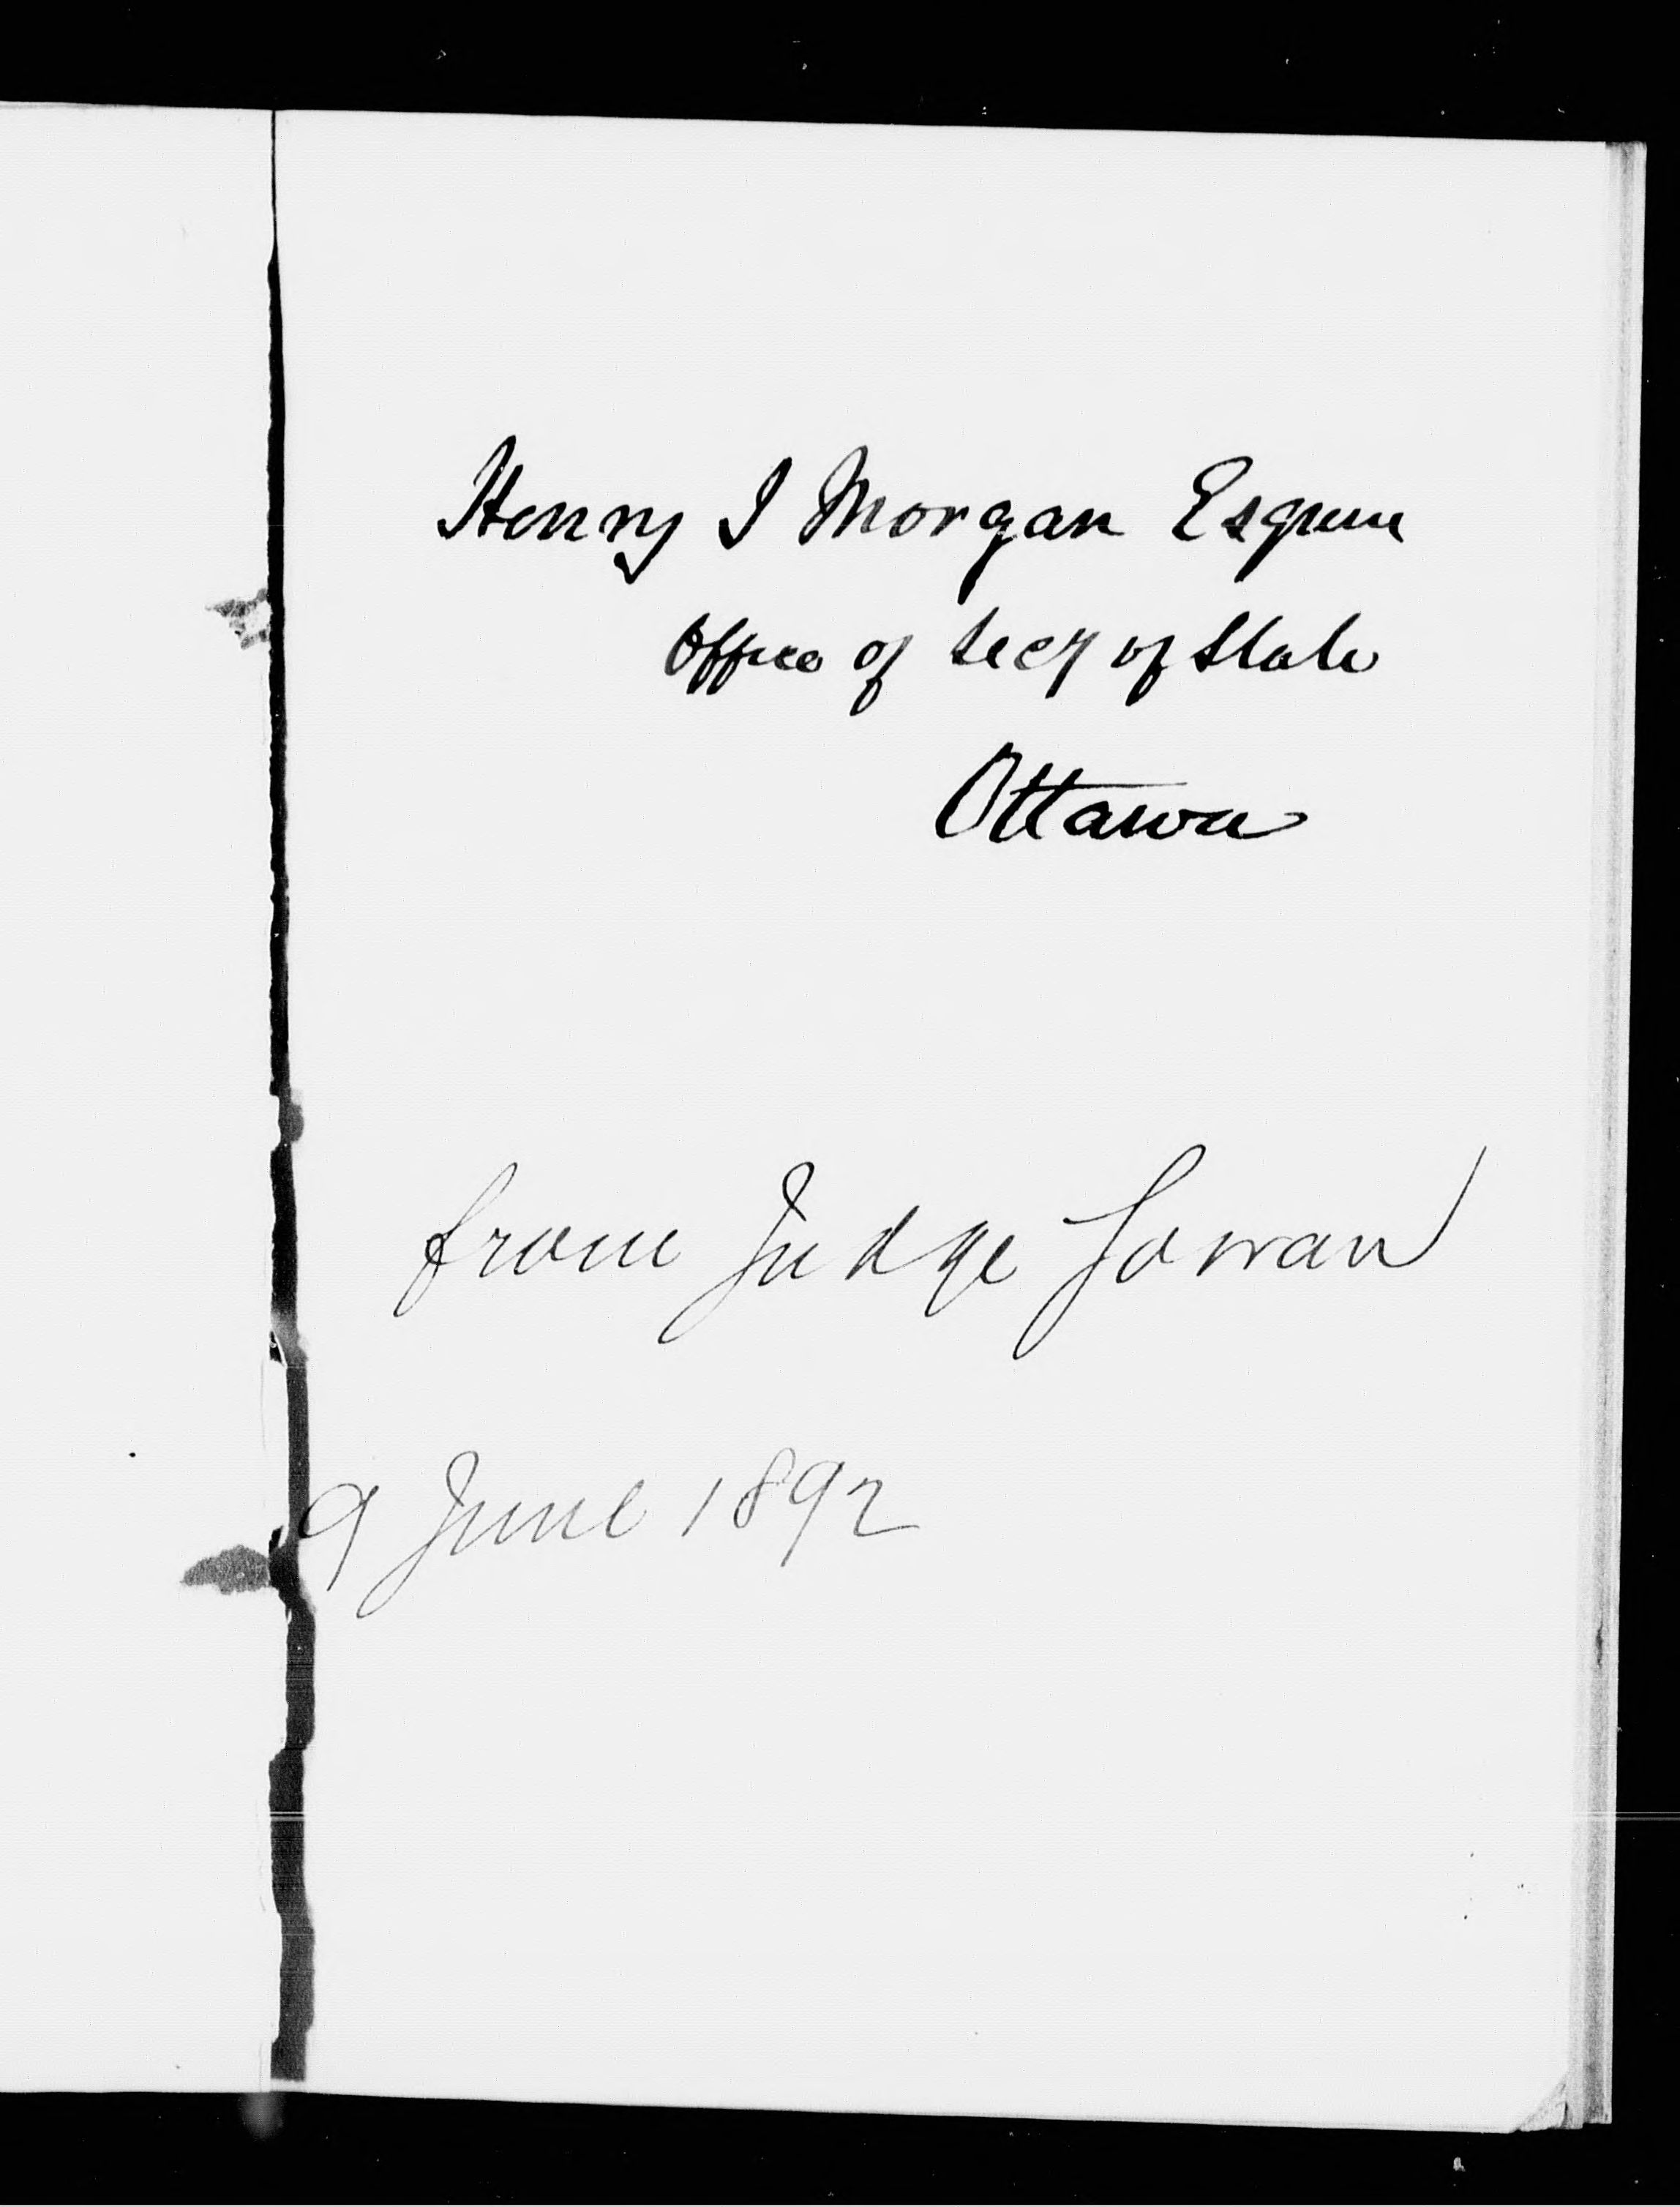 Henry J Morgan Esquire
Office of Secy of State
Ottawa
from Judge Gowan
9 June 1892